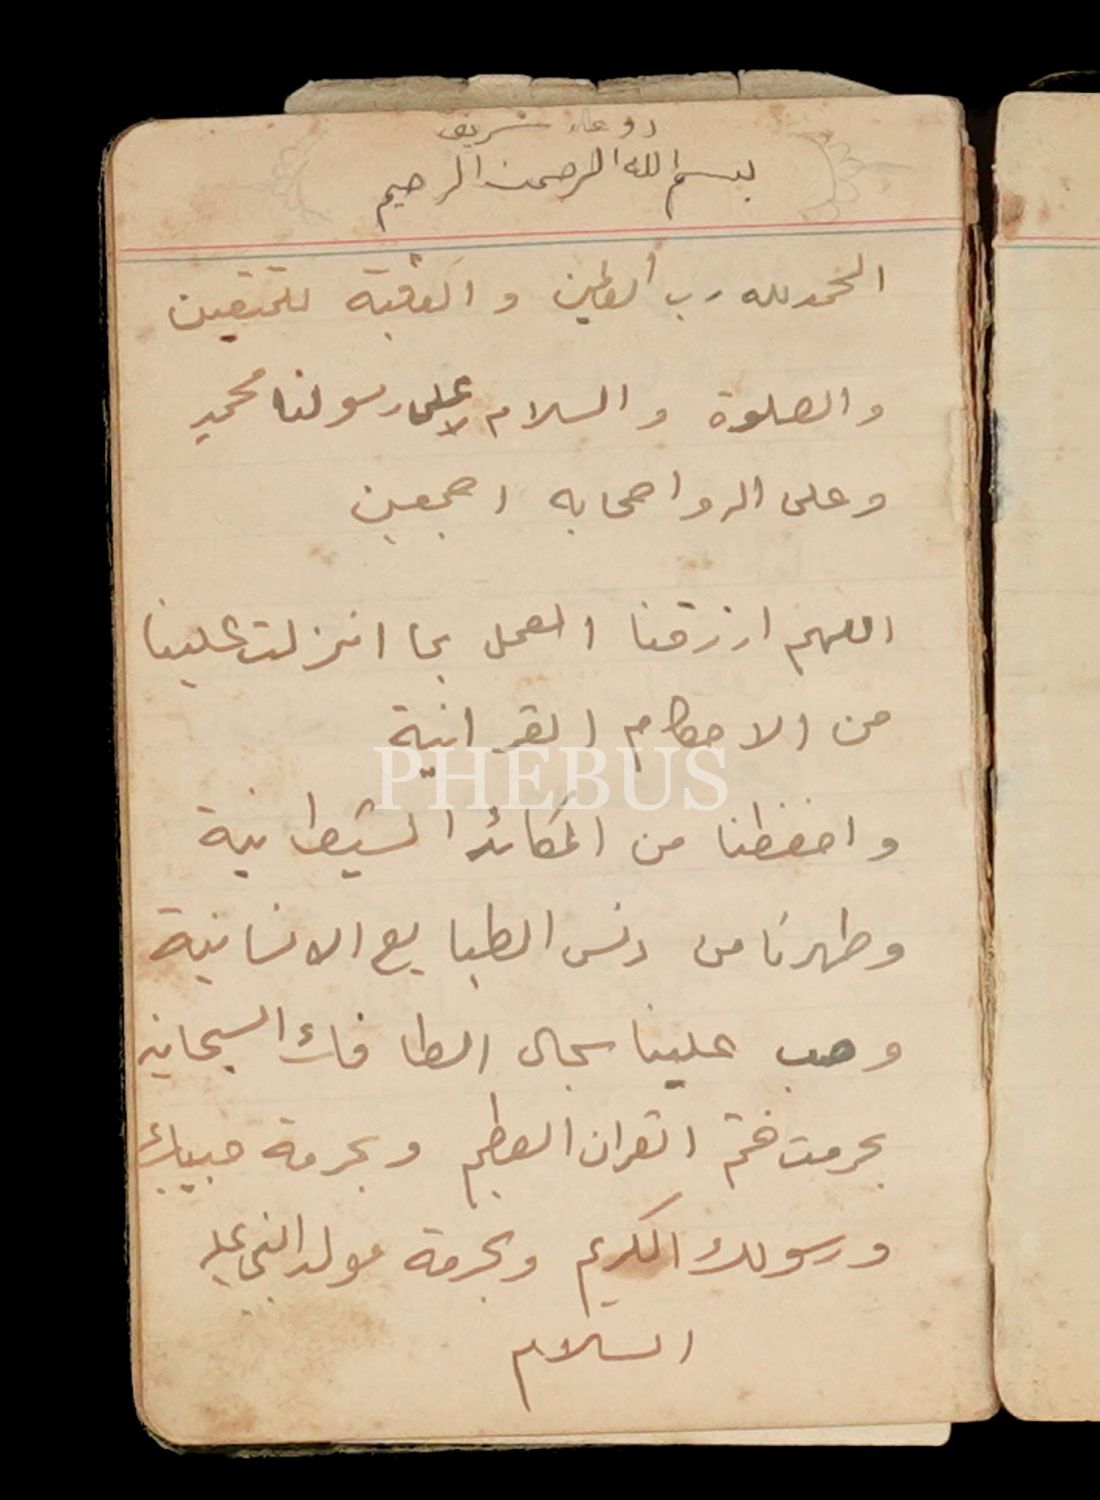 دوعاء شريف
بسم الله الرحمن الرحيم
الحمد لله رب العالمين و العقبة للمتقين
والصلوة والسلام على رسولنا محمد
وعلى اله واصحابه اجمعين
اللهم ارزقنا العمل بما انزلت علينا
من الاحكام القرانية
PHEBUS
واحفظنا من المكائد الشيطانية
وطهرنا من دنس الطبايع الانسانية
وهب علينا سجال الطافك السبحانيه
بحرمت ختم القران العظيم وبحرمة حبيبك
ورسولك الكريم وبحرمة مولد النبى عليه
السلام